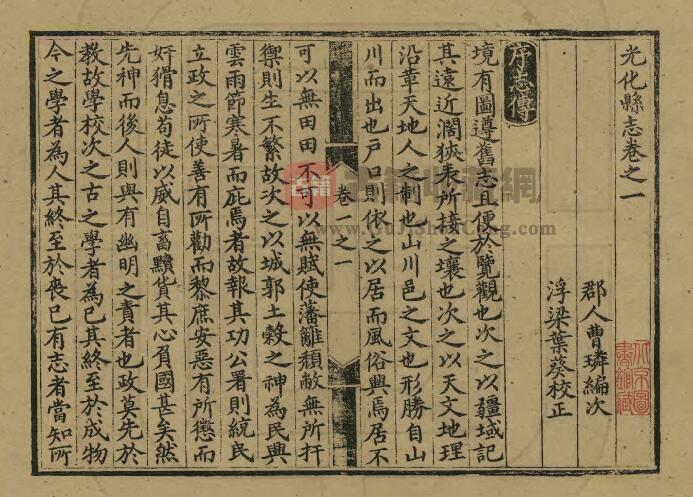 光化縣志卷之一
郡人曹璘編次
浮梁葉葵校正
序志傳
境有圖遵舊志且便於覽觀也次之以疆域記
其遠近濶狹表所接之壤也次之以天文地理
沿革天地人之制也山川邑之文也形勝自山
川而出也戸口則依之以居而風俗興焉居不
卷一之一
可以無田田不可以無賦使藩籬頹敝無所扞
禦則生不繁故次之以城郭土穀之神為民興
雲雨節寒暑而庇焉者故報其功公署則統民
立政之所使善有所勸而黎庶安惡有所懲而
奸猾息苟徒以威自畜黷貨其心負國甚矣然
先神而後人則與有幽明之責者也政莫先於
教故學校次之古之學者為己其終至於成物
今之學者為人其終至於喪已有志者當知所
古籍
www.GuJiShuCang.com